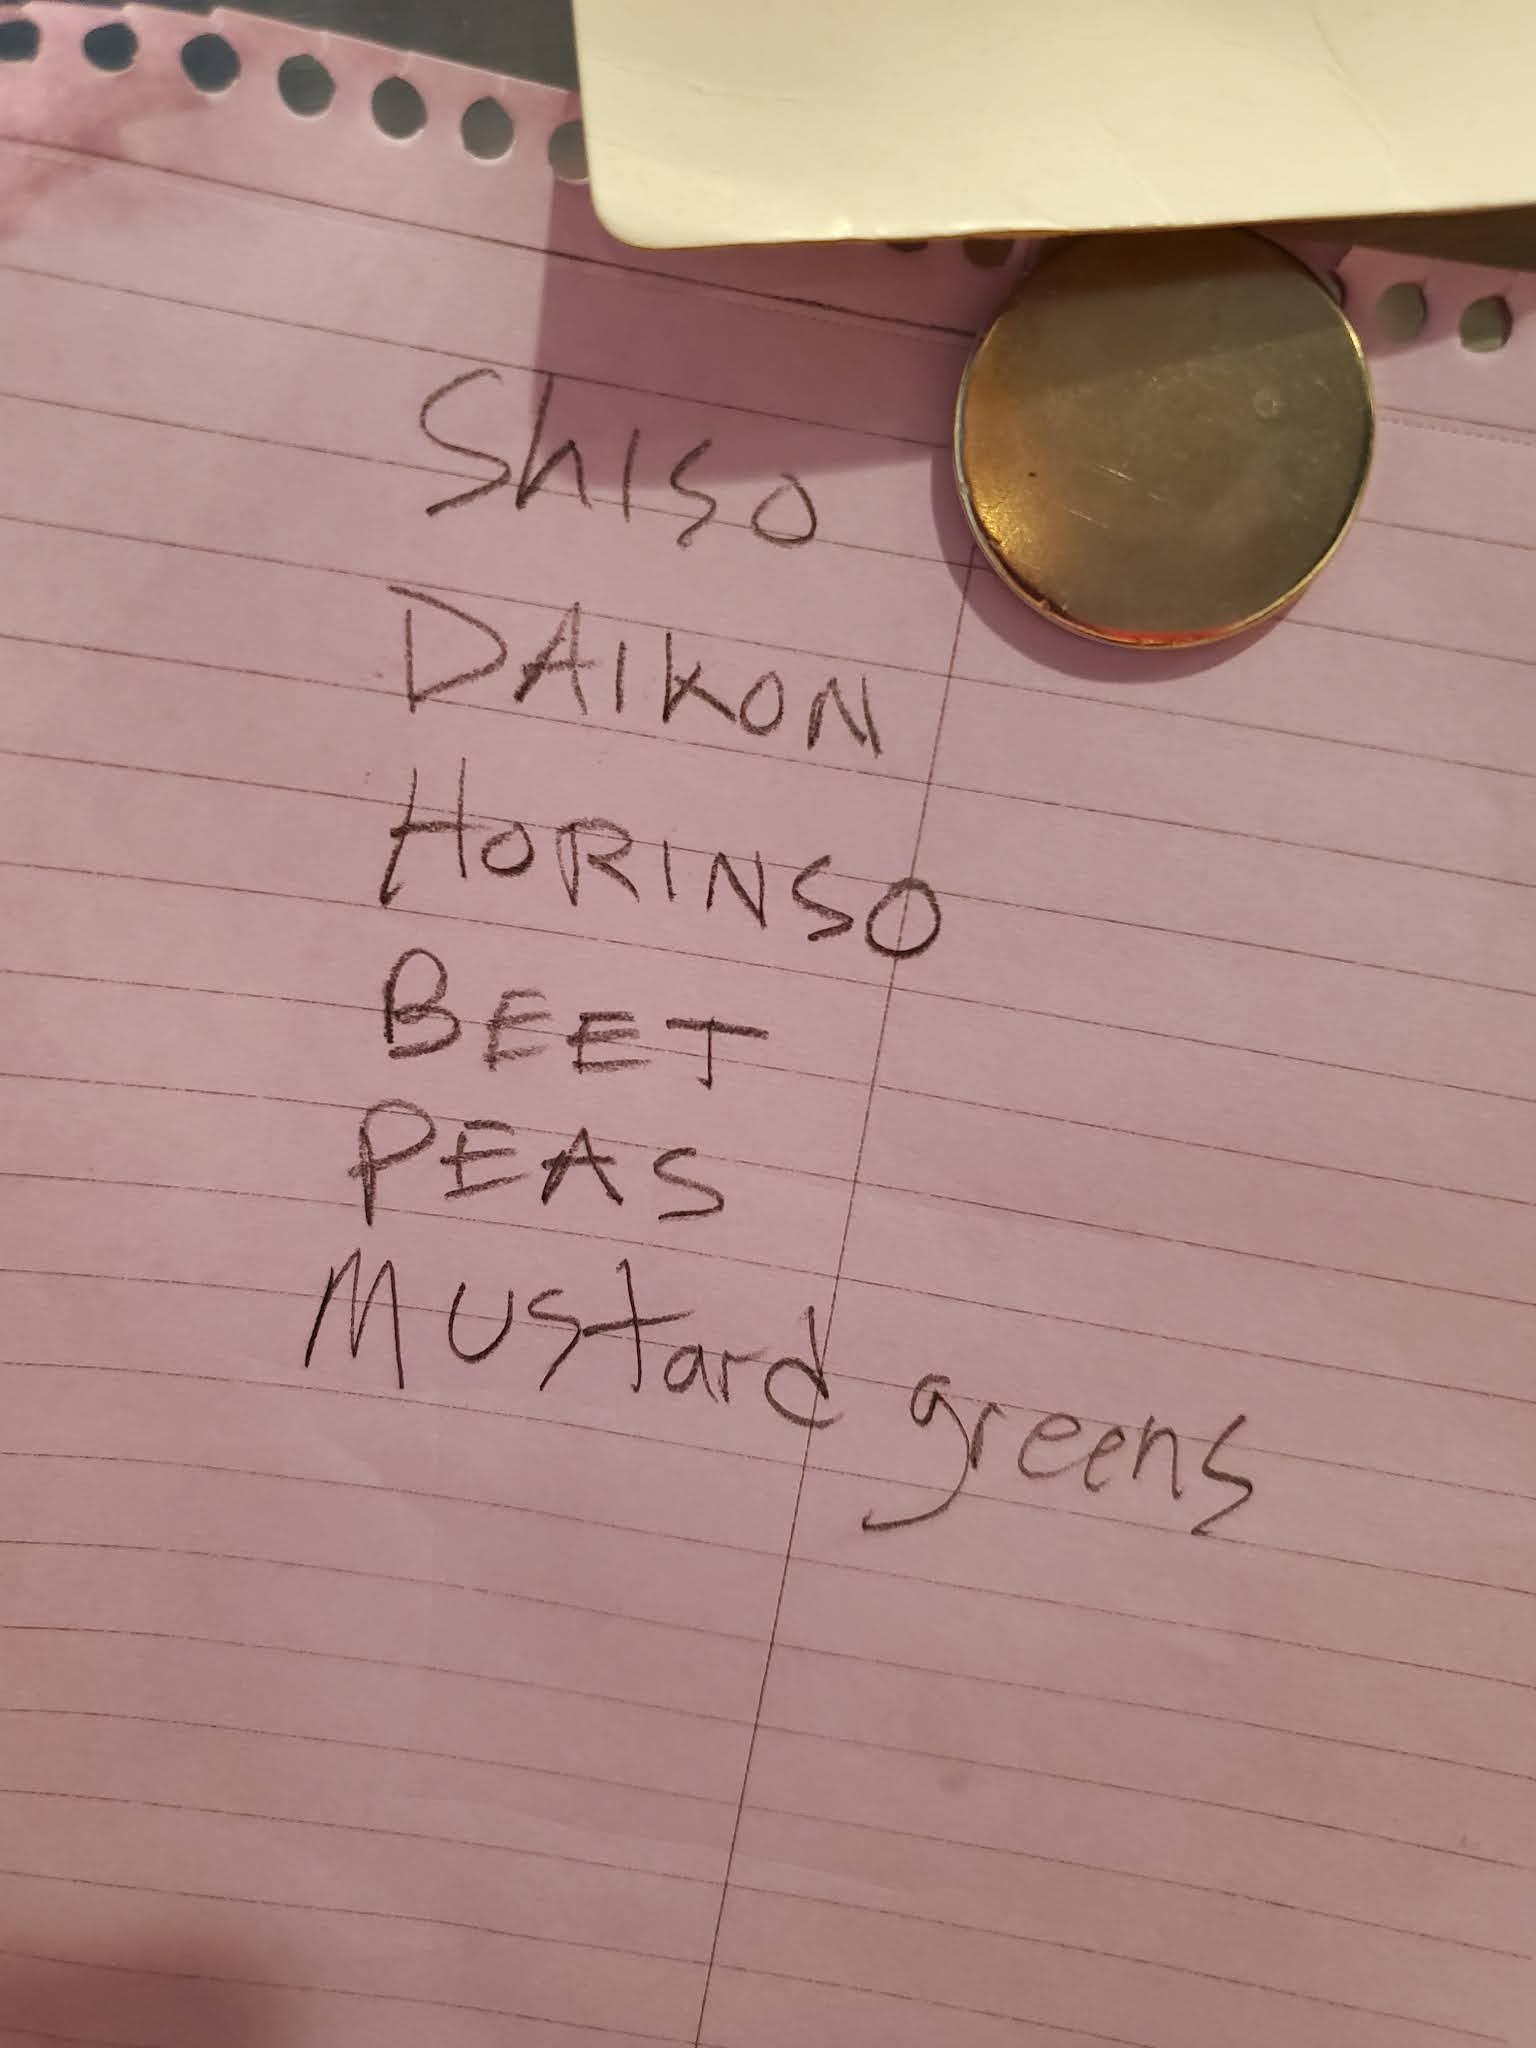 Shiso
DAIKON
HORINSO
BEET
PEAS
Mustard greens